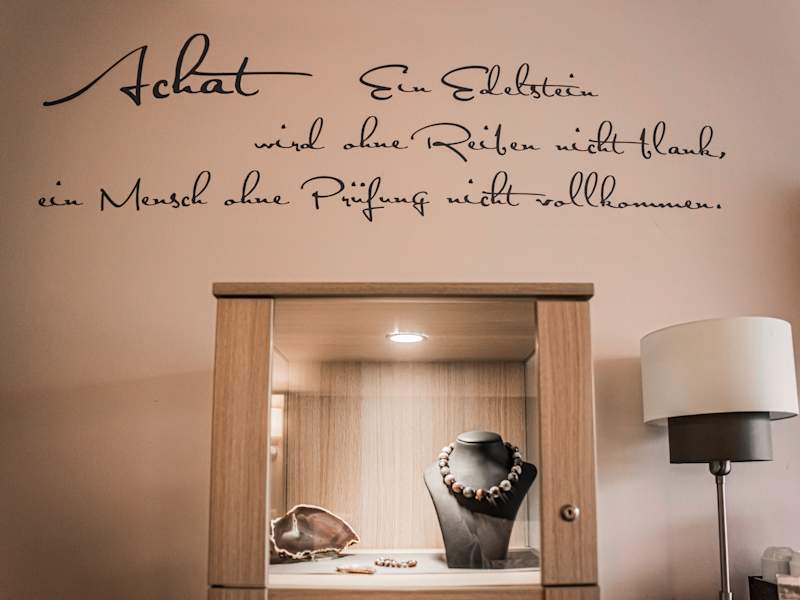 Achat Ein Edelstein
wird ohne Reiben nicht blank,
ein Mensch ohne Prüfung nicht vollkommen.